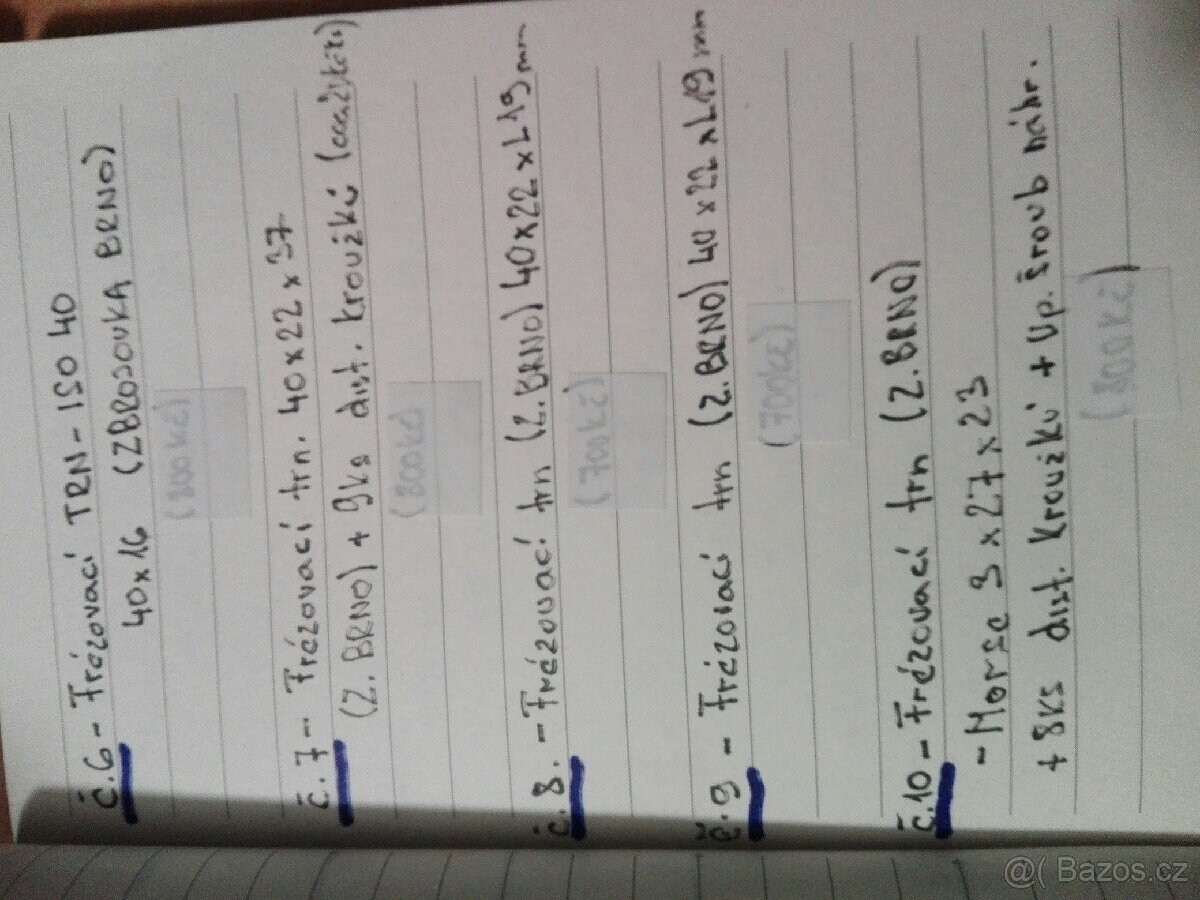 č.6 - Frézovací TRN - ISO 40
40x16 (ZBROJOVKA BRNO)
(800kč)
č.7 - Frézovací trn. 40x22x37
(Z.BRNO) + 9ks dist. kroužků
(800kč)
č.8. - Frézovací trn (Z.BRNO) 40x22xL19mm
(700kč)
č.9 - Frézovací trn (Z.BRNO) 40x22xL19mm
(700kč)
č.10 - Frézovací trn (Z.BRNO)
- Morse 3x27x23
+ 8ks dist. kroužků + Up. šroub náhr.
(800kč)
@( Bazos.cz